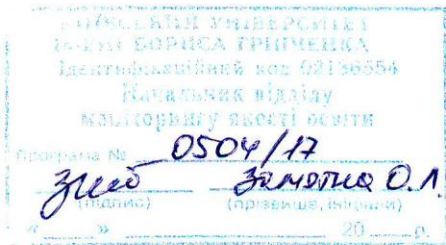 КИЇВСЬКИЙ УНІВЕРСИТЕТ
ІМЕНІ БОРИСА ГРІНЧЕНКА
Ідентифікаційний код 02136554
Начальник відділу
моніторингу якості освіти
Програма № 0504/17
Замотна О.Л.
(підпис) (прізвище, ініціали)
« » 20 р.